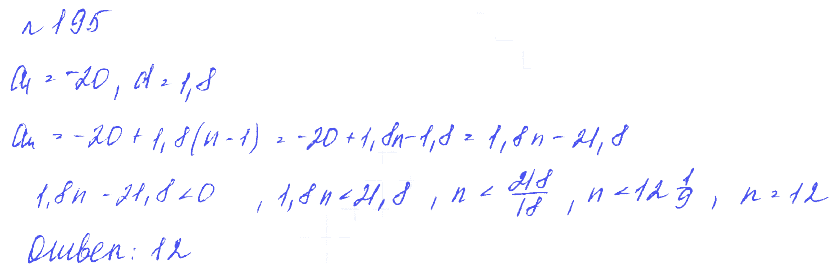 №195
a₁ = -20, d = 1,8
aₙ = -20 + 1,8(n-1) = -20 + 1,8n - 1,8 = 1,8n - 21,8
1,8n - 21,8 < 0, 1,8n < 21,8, n < 218/18, n < 12 1/9, n = 12
Ответ: 12